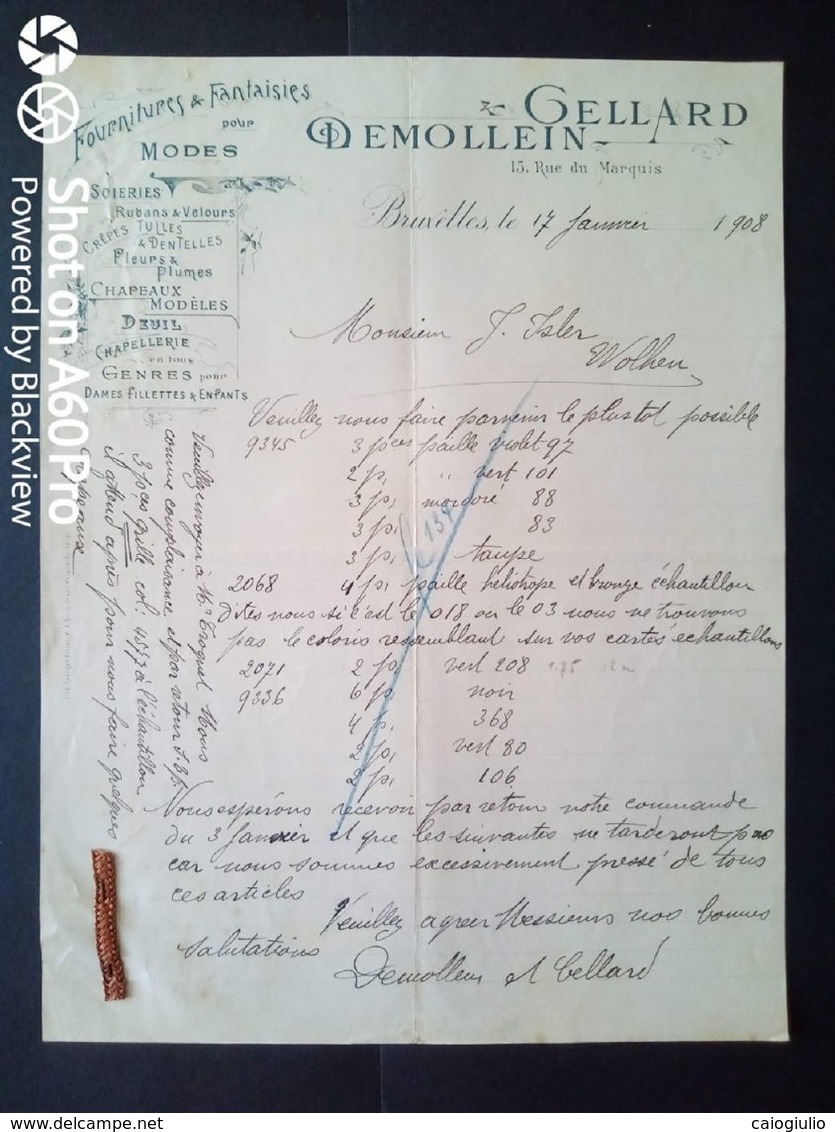 Fournitures & Fantaisies
pour
MODES
SOIERIES
Rubans & Velours
CRÊPES TULLES
& DENTELLES
Fleurs &
Plumes
CHAPEAUX
MODÈLES
DEUIL
CHAPELLERIE
en tous
GENRES pour
DAMES FILLETTES & ENFANTS
& GELLARD
DEMOLLEIN
15, Rue du Marquis
Bruxelles, le 17 Janvier 1908
Monsieur J. Isler
Wolhen
Veuillez nous faire parvenir le plus tot possible
9345 3 pces paille violet 97
2 p, " vert 101
3 p, mordoré 88
3 p, 83
3 p, taupe
2068 4 p, paille héliotrope et bronze échantillon
Dites nous si c'est le 018 ou le 03 nous ne trouvons
pas le coloris ressemblant sur vos cartes echantillons
2071 2 p, vert 208 1.75
9336 6 p, noir
4 p, 368
2 p, vert 80
2 p, 106
Nous espérons recevoir par retour notre commande
du 3 Janvier et que les suivantes ne tarderont pas
car nous sommes excessivement pressé de tous
ces articles
Veuillez agreer Messieurs nos bonnes
salutations
Demollein et Cellard
Veuillez envoyer à Mr Troquet Nous
comme complaisance et par retour S.B.p.
3 pces grille col. 4557 à l'échantillon
il attend après pour nous faire quelques
chapeaux
134
Shot on A60Pro
Powered by Blackview
www.delcampe.net
caiogiulio